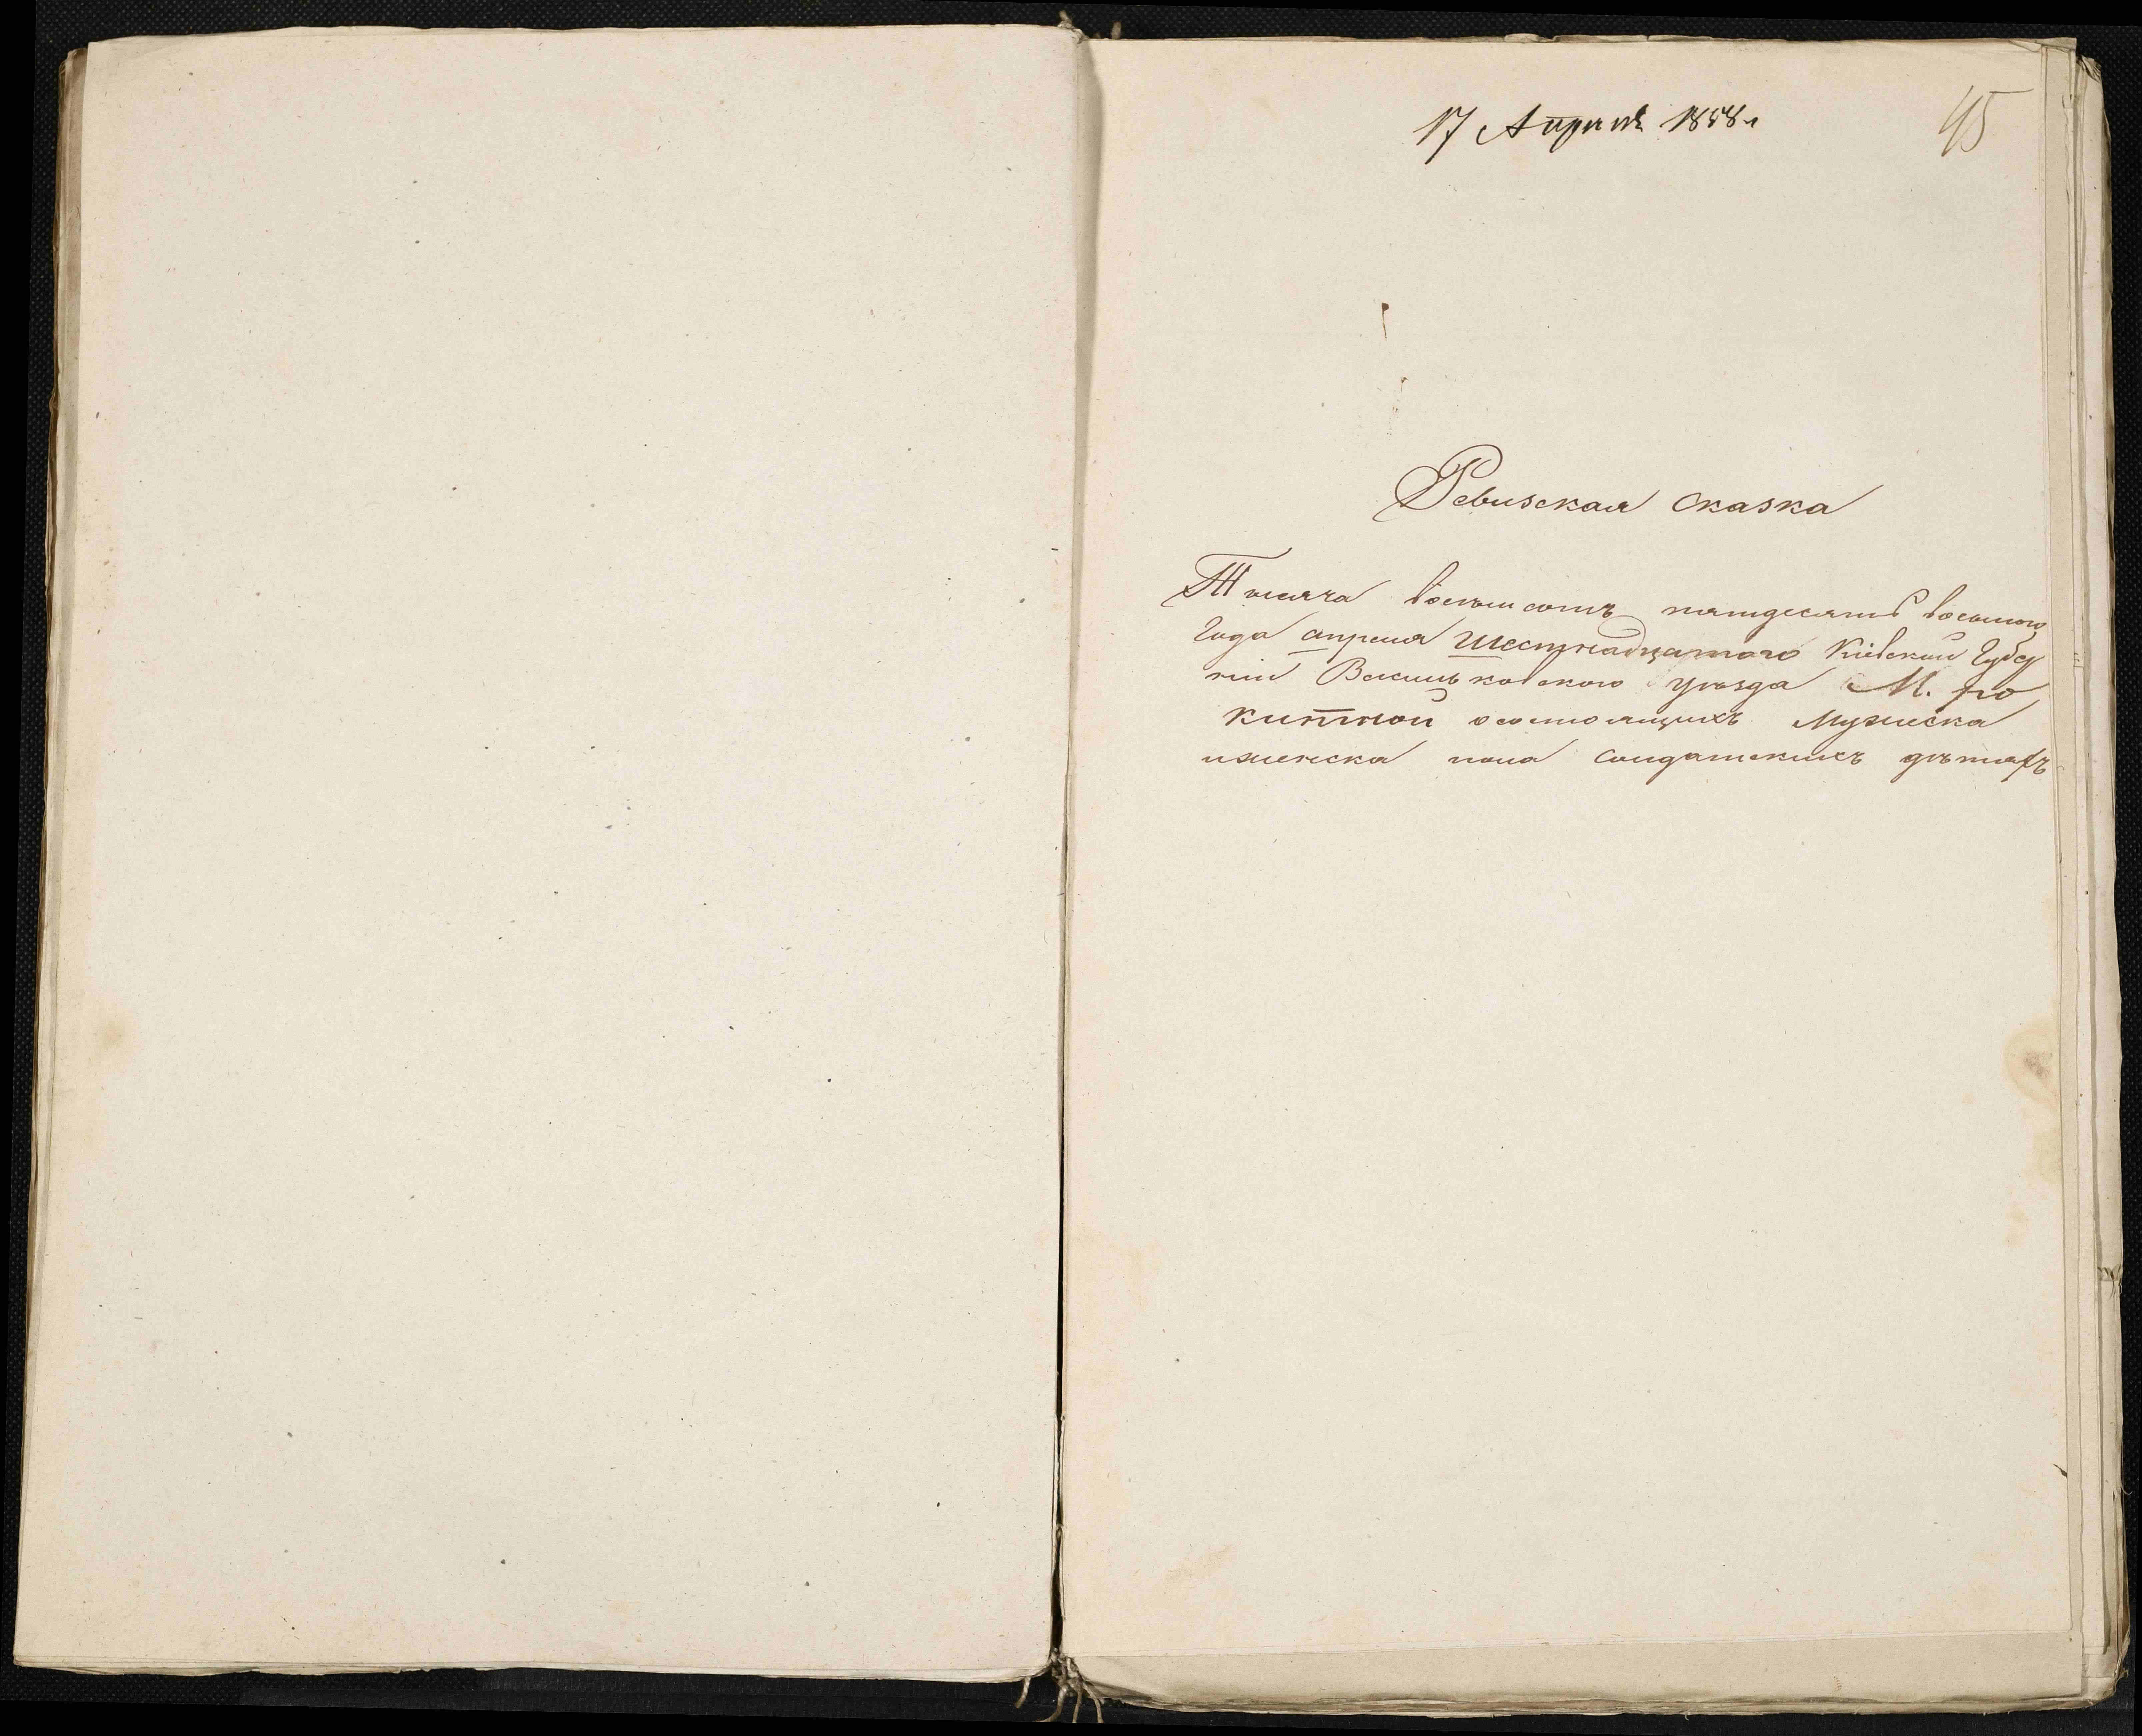 17 Апрѣля 1858 г
45
Ревизская сказка
Тысяча восемьсотъ пятдесятъ восьмого
Года апреля Шестнадцатого Кіевской Губер
ніи Васильковского уѣзда М. ро
китной осостоящихъ Мужеска
иженска пола солдатскихъ дѣтяхъ